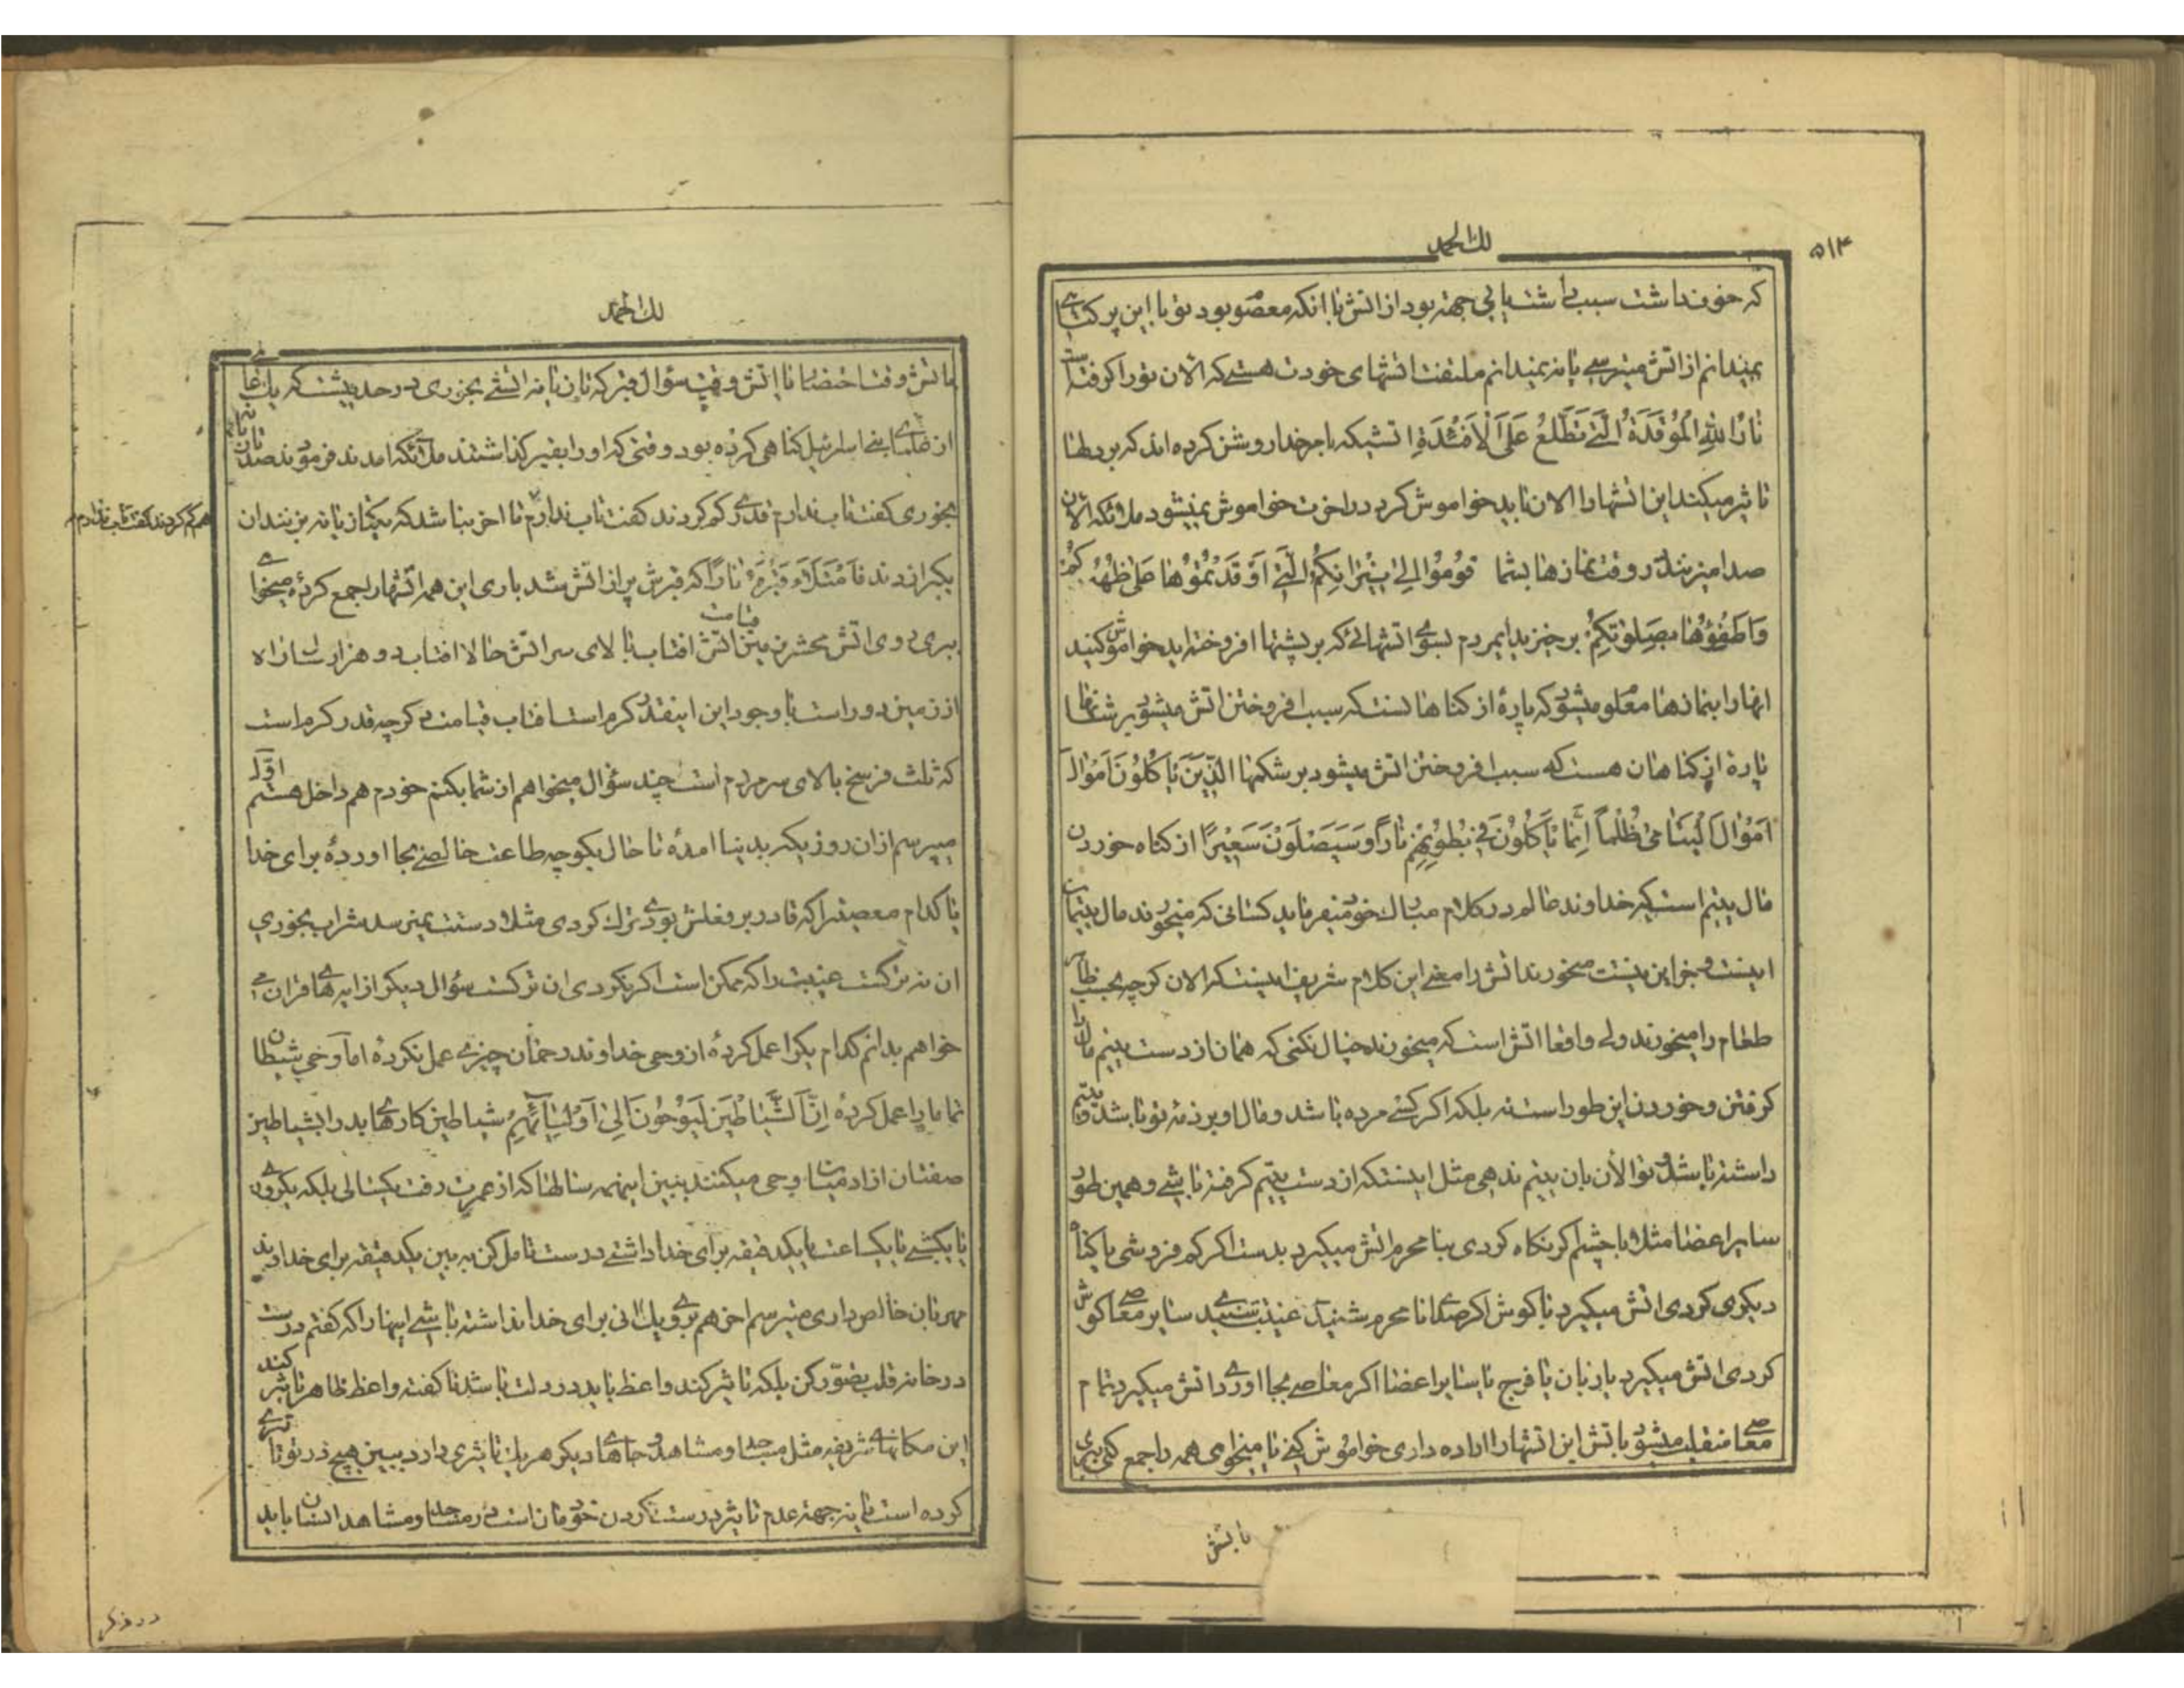 لك الحمد
۵۱۴
که خوف داشت سبب داشت یا بی جهة بود از اتش با انکه معصوم بود تو با این پر کناهی
نمیدانم از اتش میترسی یا نه نمیدانم ملتفت اتشهای خودت هستی که الان تو را کرفته است
نَارُ اللهِ الْمُوقَدَةُ الَّتِی تَطَّلِعُ عَلَی الْاَفْئِدَةِ اتشیکه بامر خدا روشن کرده اند که بر دلها
تاثیر میکند این اتشها را الان باید خواموش کرد در اخرت خواموش نمیشود ملائکه الان
صدا میزنند در وقت نمازها بشما قُومُوا اِلی نِیْرانِکُمُ الَّتِی اَوْقَدْتُمُوْها عَلی ظُهُورِکُمْ
وَاَطْفِؤُهَا بِصَلوتِکُمْ برخیزید ایمردم بسوی اتشهائی که بر پشتها افروخته اید خواموش کنید
انها را بنمازها معلوم میشود که پارهٔ از کناهانست که سبب افروختن اتش میشود بر پشتها
پارهٔ از کناهان هست که سبب افروختن اتش میشود بر شکمها اَلَّذِیْنَ یَاکُلُوْنَ اَمْوٰالَ
اَمْوٰالَ الْیَتَامٰی ظُلْماً اِنَّمَا یَاْکُلُوْنَ فِی بُطُوْنِهِمْ نَارًا وَسَیَصْلَوْنَ سَعِیْرًا از کناه خوردن
مال یتیم است که خداوند عالم در کلام مبارك خود میفرماید کسانی که میخورند مال یتیمان
اینست و جز این نیست میخورند اتش را معنی این کلام شریف اینست که الان کرچه بحسب ظاهر
طعام را میخورند ولی واقعا اتش است که میخورند خیال نکنی که همان از دست یتیم مال را
کرفتن و خوردن این طور است نه بلکه اکر کسی مرده باشد و مال او بر ذمهٔ تو باشد و یتیم
داشته باشد و تو الأن بان یتیم ندهی مثل اینستکه از دست یتیم کرفته باشی و همین طور
سایر اعضا مثلا با چشم اکر نکاه کردی بنا محرم اتش میکیرد بدست اکر کم فروشی یا کناه
دیکری کردی اتش میکیرد با کوش اکر صدای نامحرم شنیدی غیبت شنیدی سایر معاصی کوش
کردی اتش میکیرد با زبان یا فرج یا سایر اعضا اکر معاصی بجا اوردی اتش میکیرد تمام
معاصی منقلب میشود باتش این اتشها را اراده داری خواموش کنی یا میخواهی همه را جمع کنی ببری
باتش
لك الحمد
باتش وقت احتضار با اتش وقت سؤال قبر که تازیانه اتشی بخوری در حدیثست که یك نفری
از علمای بنی اسرائیل کناهی کرده بود وقتی که او را بقبر کذاشتند ملائکه امدند فرمودند صد تازیانه
بخوری کفت تاب ندارم قدری کم کردند کفت تاب ندارم تا اخر بنا شد که یکتازیانه بزنند ان
هم کم کردند کفت تاب ندارم
یکی را زدند فَامْتَلَاءَ قَبْرُهُ نَارًا که قبرش پر از اتش شد باری این همه اتشها را جمع کردهٔ میخواهی
ببری روی اتش محشر زمین اتش افتاب قیامت بالای سر اتش حالا افتاب دو هزار سال راه
از زمین دور است با وجود این اینقدر کرم است افتاب قیامت دیکر چه قدر کرم است
که ثلث فرسخ بالای سر مردم است چند سؤال میخواهم از شما بکنم خودم هم داخل هستم اوّل
میپرسم از ان روزیکه بدنیا امدهٔ تا حال یکوجه طاعت خالصی بجا اوردهٔ برای خدا
یا کدام معصیترا که قادر بر فعلش بودی ترك کردی مثلا دستت نمیرسد شراب بخوری
ان نه ترکست غیبت را که ممکن است اکر نکردی ان ترکست سؤال دیکر از ایه های قران می
خواهم بدانم کدام یکرا عمل کردهٔ از وحی خداوند رحمان چیزی عمل نکردهٔ اما وحی شیطان
تمامارا عمل کردهٔ اِنَّ الشَّیَاطِیْنَ لَیُوْحُوْنَ اِلیٰ اَوْلِیَائِهِمْ شیاطین کارهای بد را بشیاطین
صفتان از ادمیان وحی میکنند ببین اینهمه سالها که از عمرت رفت یکسالی بلکه یکروزی
یا یکشبی یا یکساعت یا یکدقیقه برای خدا داشتی درست تامل کن به بین یکدقیقه برای خداوند
مهربان خالص داری میترسم اخر هم بروی یك انی برای خدا نداشته باشی اینها را که کفتم درست
در خانهٔ قلب تصوّر کن بلکه تاثیر کند واعظ باید در دلت باشد تا کفته واعظ ظاهر تاثیر کند
این مکانهای شریفه مثل مساجد و مشاهد و جاهای دیکر هر یك تاثیری دارد ببین هیچ در تو تاثیری
کرده است یا نه جهة عدم تاثیر درست نکردن خودمان است در مساجد و مشاهد انسان باید
در فکر